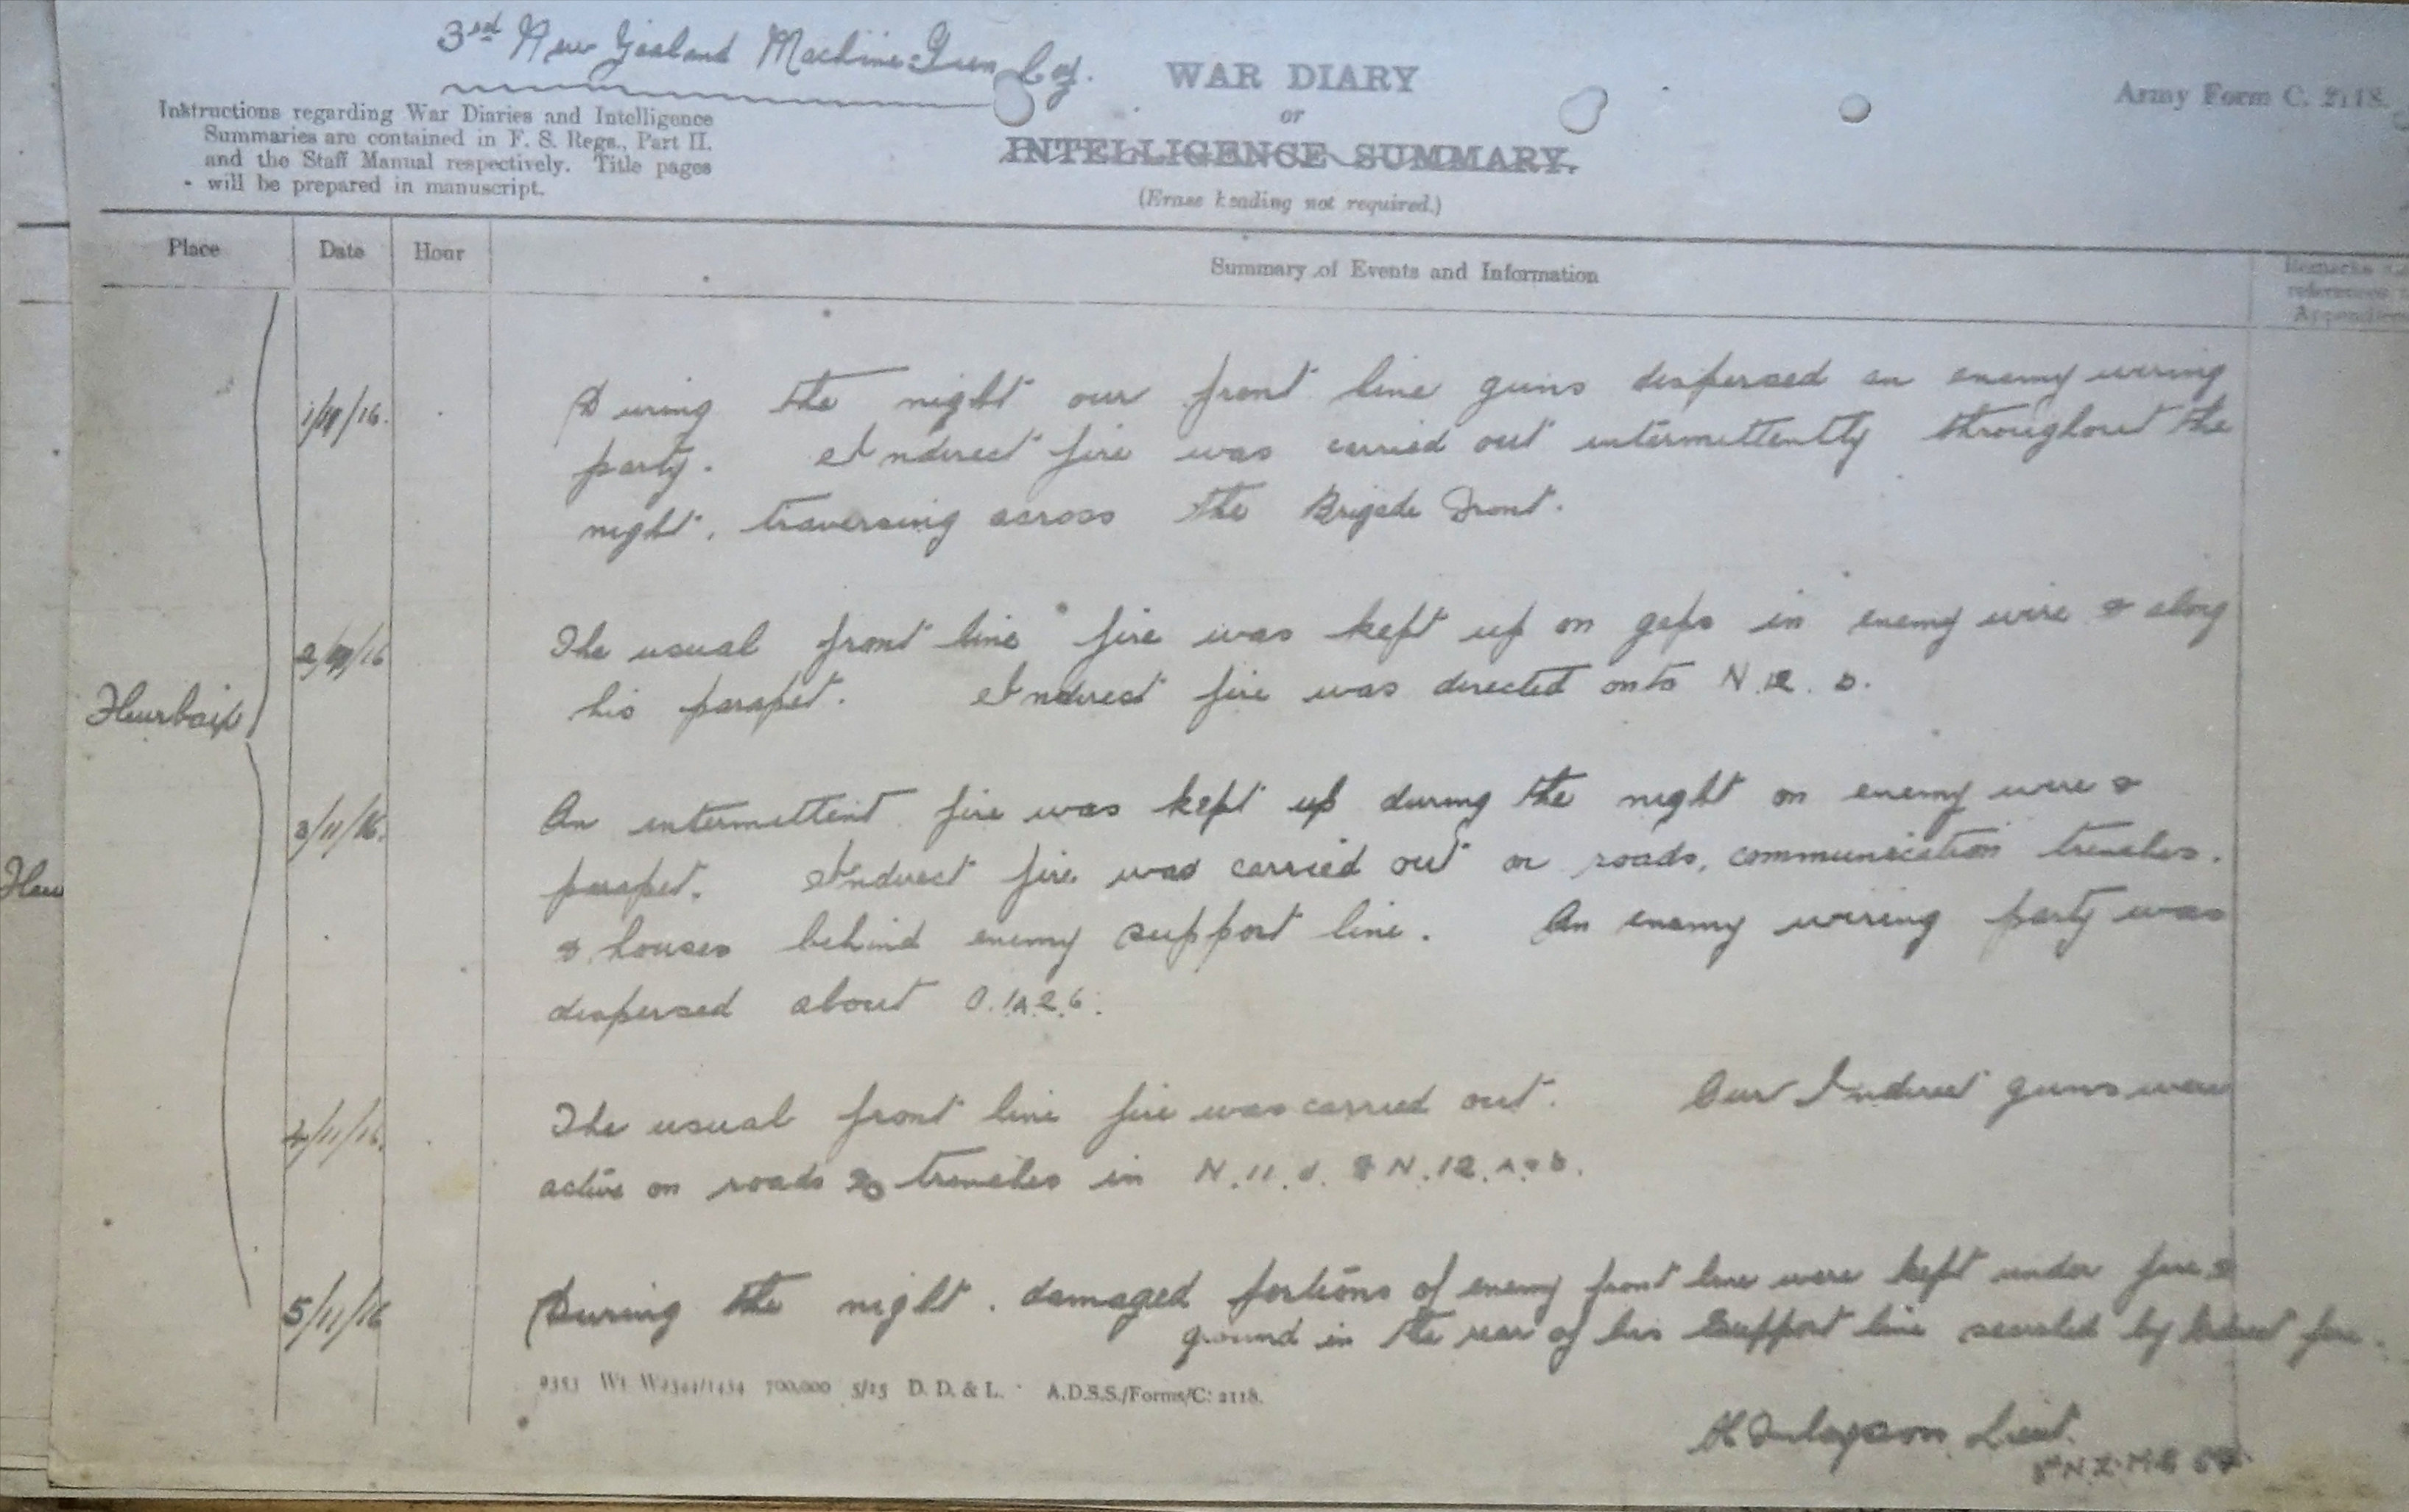 3rd New Zealand Machine Gun Coy.
WAR DIARY
or
INTELLIGENCE SUMMARY.
(Erase heading not required.)
Army Form C. 2118.
Instructions regarding War Diaries and Intelligence
Summaries are contained in F. S. Regs., Part II.
and the Staff Manual respectively. Title pages
will be prepared in manuscript.
Place Date Hour Summary of Events and Information Remarks
references
Fleurbaix
1/11/16. During the night our front line guns dispersed an enemy wiring
party. Indirect fire was carried out intermittently throughout the
night, traversing across the Brigade Front.
2/11/16 The usual front line fire was kept up on gaps in enemy wire & along
his parapet. Indirect fire was directed onto N.12. D.
3/11/16. An intermittent fire was kept up during the night on enemy wire &
parapet. Indirect fire was carried out on roads, communication trenches.
& houses behind enemy support line. An enemy wiring party was
dispersed about O.1A.2.6.
4/11/16. The usual front line fire was carried out. Our Indirect guns were
active on roads & trenches in N.11.d. & N.12.A.&B.
5/11/16 During the night. damaged portions of enemy front line were kept under fire &
ground in the rear of his support line searched by Indirect fire.
W1 700,000 5/15 D. D. & L. A.D.S.S./Forms/C. 2118.
Lieut.
N.Z.M.G. Coy.